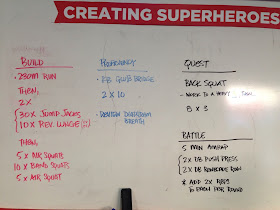 CREATING SUPERHEROES
BUILD
• 280M RUN
THEN,
2X
30x JUMP JACKS
10x REV. LUNGE
THEN,
5 x AIR SQUATS
10 x BAND SQUATS
5 x AIR SQUAT
• DB GLUTE BRIDGE
2 x 10
• REVIEW DIAPHRAGM BREATH
QUEST
BACK SQUAT
- WORK TO A HEAVY
5 x 3
BATTLE
5 MIN AMRAP
2x DB PUSH PRESS
2x DB RENEGADE ROW
* ADD 2x REPS
TO EACH PER ROUND